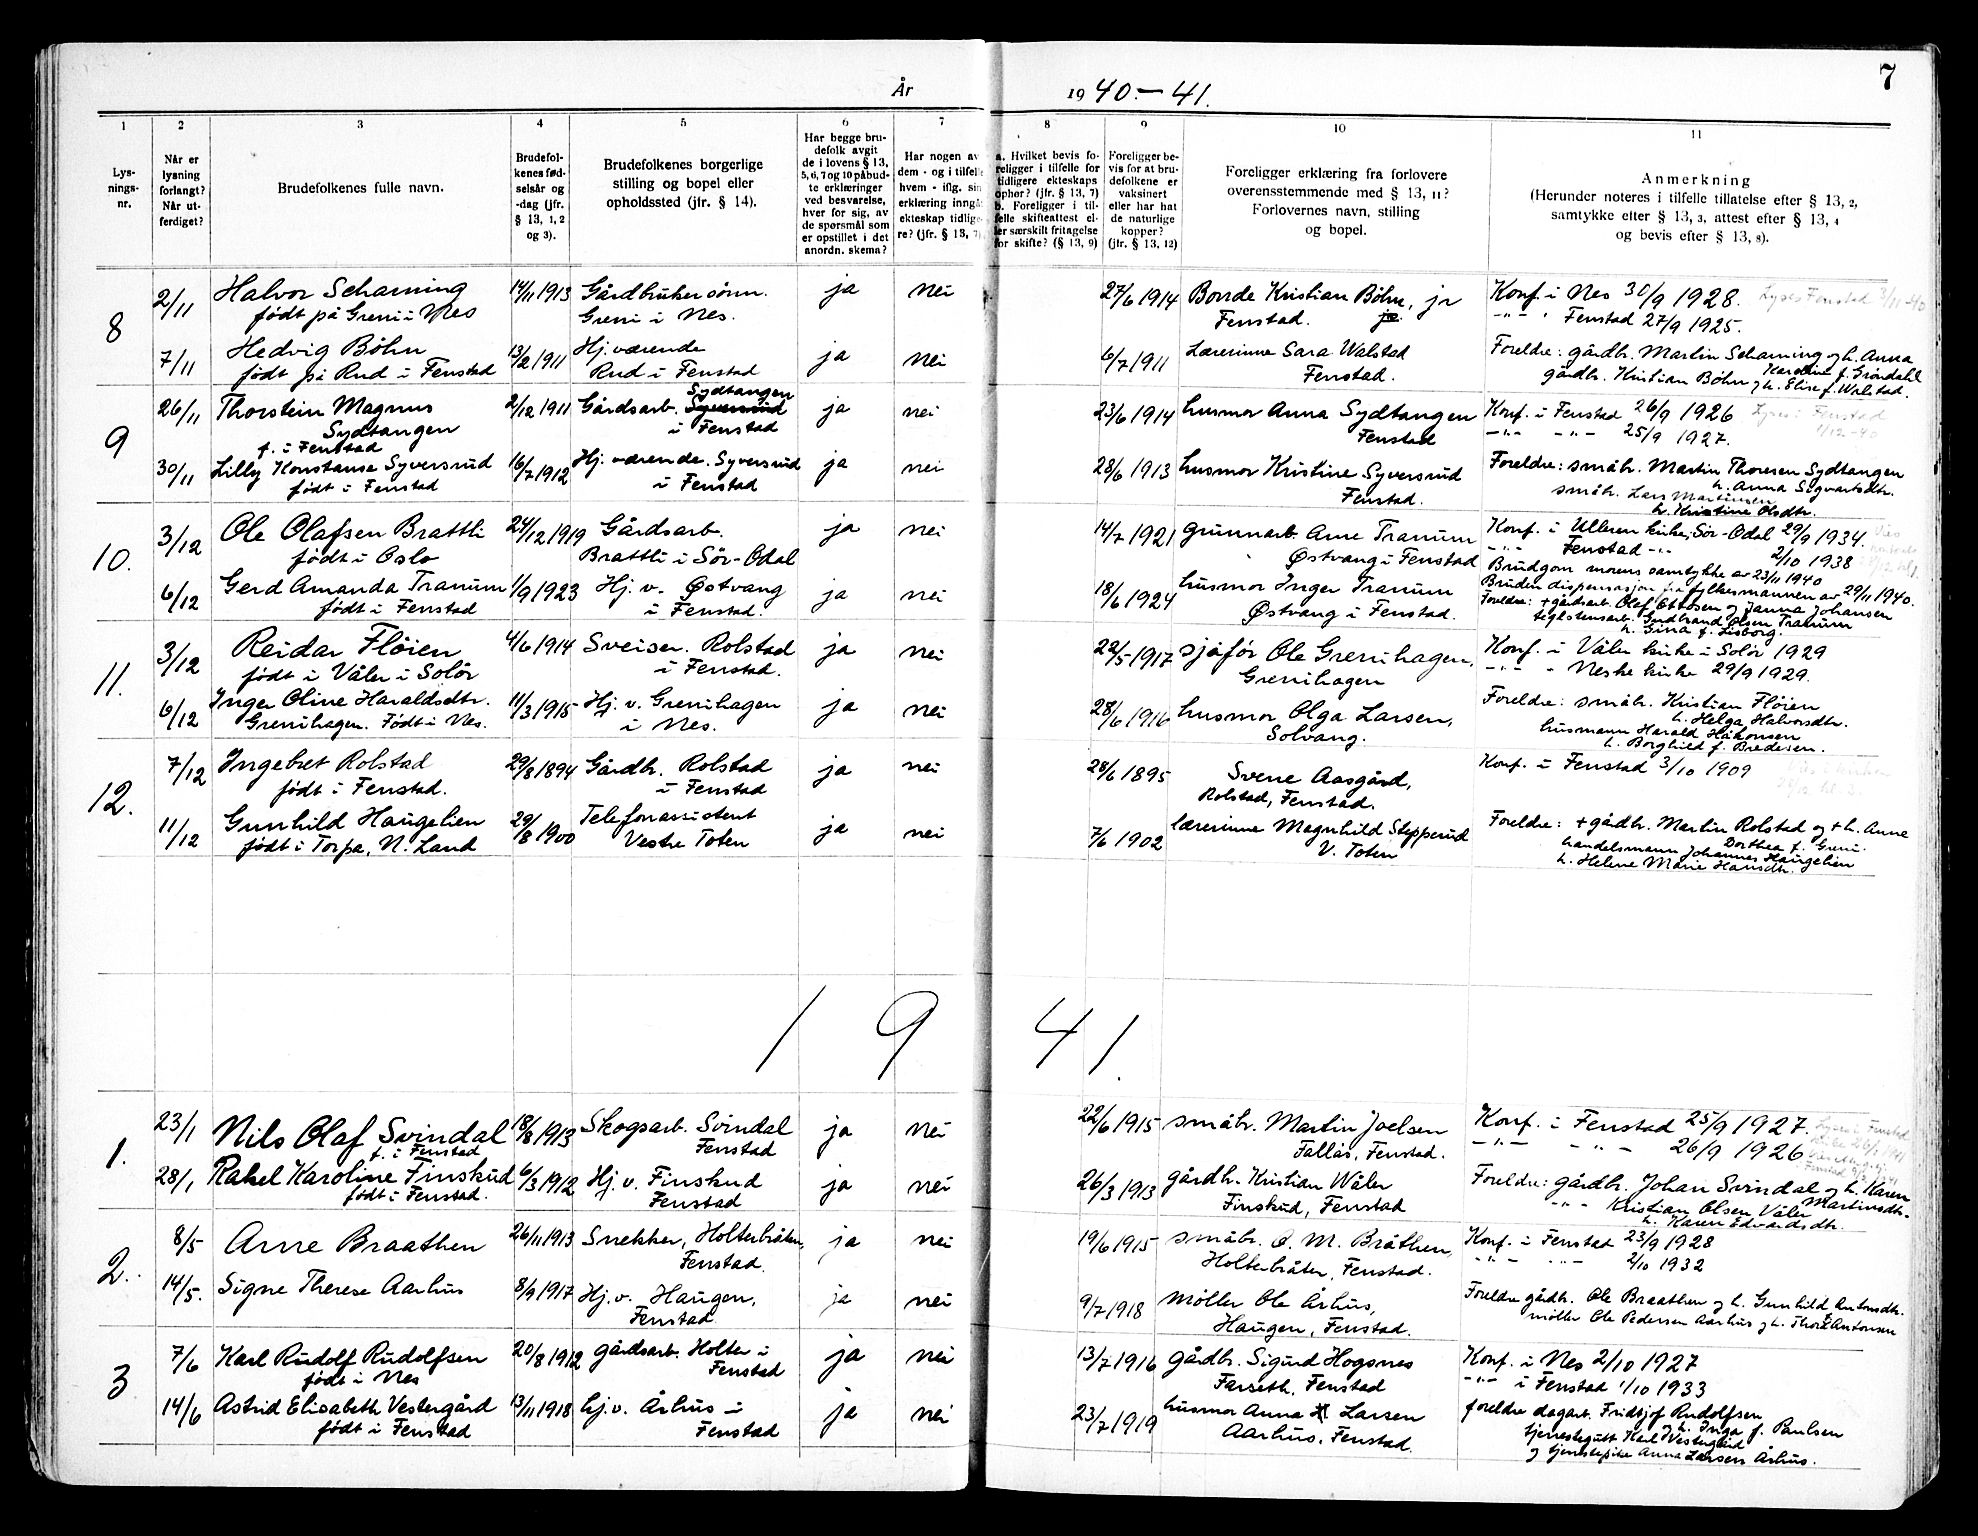 År 1940.-41.
7
1 2 3 4 5 6 7 8 9 10 11
Lys-
nings-
nr.
Når er
lysning
forlangt?
Når ut-
ferdiget?
Brudefolkenes fulle navn.
Brudefol-
kenes fød-
selsår og
-dag (jfr.
§ 13, 1, 2
og 3).
Brudefolkenes borgerlige
stilling og bopel eller
opholdssted (jfr. § 14).
Har begge bru-
defolk avgit
de i lovens § 13,
5, 6, 7 og 10 påbud-
te erklæringer
ved besvarelse,
hver for sig, av
de spørsmål som
er opstillet i det
anordn. skema?
Har nogen av
dem - og i tilfelle
hvem - iflg. sin
erklæring inngåt
ekteskap tidlige-
re? (jfr. § 13, 7).
a. Hvilket bevis fo-
religger i tilfelle for
tidligere ekteskaps
ophør? (jfr. § 13, 7)
b. Foreligger i til-
felle skifteattest el-
ler særskilt fritagelse
for skifte? (§ 13, 9)
Foreligger be-
vis for at bru-
defolkene er
vaksinert
eller har hat
de naturlige
kopper?
(jfr. § 13, 12)
Foreligger erklæring fra forlovere
overensstemmende med § 13, 11?
Forlovernes navn, stilling
og bopel.
Anmerkning
(Herunder noteres i tilfelle tillatelse efter § 13, 2,
samtykke efter § 13, 3, attest efter § 13, 4
og bevis efter § 13, 8).
8
2/11 Halvor Scharning 14/11 1913 Gårdbrukersønn. ja nei 27/6 1914 Bonde Kristian Böhn, jr Konf. i Nes 30/9 1928. Lyses Fenstad 3/11-40
født på Greni i Nes Greni i Nes. Fenstad. jr. -"- " Fenstad 27/9 1925.
7/11 Hedvig Böhn 13/2 1911 Hj. værende ja nei 6/7 1911 Lærerinne Sara Walstad Foreldre: gårdbr. Martin Scharning og h. Anna
født på Rud i Fenstad Rud i Fenstad Fenstad. Karoline f. Gröndahl
gårdbr. Kristian Böhn og h. Elise f. Walstad.
9
26/11 Thorstein Magnus 2/12 1911 Gårdsarb. Syversrud Sydtangen ja nei 23/6 1914 husmor Anna Sydtangen Konf. i Fenstad 26/9 1926 Lyses i Fenstad
Sydtangen i Fenstad Fenstad -"- -"- 25/9 1927. 1/12-40
f. i Fenstad
30/11 Lilly Konstanse Syversrud 16/7 1912 Hj. værende. Syversrud ja nei 28/6 1913 husmor Kristine Syversrud Foreldre: småbr. Martin Thoresen Sydtangen
født i Fenstad i Fenstad Fenstad. h. Anna Sigvartsdtr.
småbr. Lars Martinsen
h. Kristine Olsdtr.
10.
3/12 Ole Olafsen Brattli 24/12 1919 Gårdsarb. ja nei 14/7 1921 grünnarb. Arne Tranum Konf. i Ulleren kirke, Sör-Odal 29/9 1934.
født i Oslo Brattli i Sör-Odal Østvang i Fenstad -"- Fenstad -"- 2/10 1938
Brudgom morens samtykke av 23/11 1940
6/12 Gerd Amanda Tranum 1/9 1923 Hj. v. Østvang ja nei 18/6 1924 husmor Inger Tranum Bruden dispensasjon fra fylkesmannen av 29/11 1940.
født i Fenstad i Fenstad. Østvang i Fenstad. Foreldre: + gårdsarb. Olaf Ottosen og Janna Johansen
teglstensarb. Gudbrand Olsen Tranum
h. Gina f. Lisborg.
11.
3/12 Reidar Flöien 4/6 1914 Sveiser. Rolstad ja nei 22/5 1917 sjåfør Ole Grenihagen, Konf. i Våler kirke i Solör 1929
født i Våler i Solör i Fenstad. Grenihagen -"- " Neske kirke 29/9 1929.
6/12 Inger Oline Haraldsdtr. 11/3 1915 Hj. v. Grenihagen ja nei 28/6 1916 husmor Olga Larsen, Foreldre: småbr. Kristian Flöien
Grenihagen. Født i Nes. i Nes. Solvang. h. Helga Halvorsdtr.
husmann Harald Håkonsen
h. Borghild f. Bredesen.
12.
7/12 Ingebret Rolstad 29/8 1894 Gårdbr. Rolstad ja nei 28/6 1895 Svene Aasgård, Konf. i Fenstad 3/10 1909
født i Fenstad. i Fenstad Rolstad, Fenstad.
11/12 Gunhild Haugelien 29/8 1900 Telefonassistent ja nei 7/6 1902 lærerinne Magnhild Stepperud Foreldre: + gårdbr. Martin Rolstad og + h. Anne
født i Torpa, N. Land Vestre Toten V. Toten Dorthea f. Greni.
handelsmann Johannes Haugelien
h. Helene Marie Hansdtr.
1941.
1.
23/1 Nils Olaf Svindal 18/8 1913 Skogsarb. Svindal ja nei 22/6 1915 småbr. Martin Joelsen Konf. i Fenstad 25/9 1927.
f. i Fenstad Fenstad Fallås, Fenstad. -"- -"- 26/9 1926
28/1 Rakel Karoline Finskud 6/3 1912 Hj. v. Finskud ja nei 26/3 1913 gårdbr. Kristian Wåler Foreldre: gårdbr. Johan Svindal og h. Karen
født i Fenstad. Fenstad Finskud, Fenstad Martinsdtr.
"- Kristian Olsen Våler
h. Karen Edvardsdtr.
2.
8/5 Arne Braathen 26/11 1913 Snekker, Holterbråten, ja nei 19/6 1915 småbr. O. M. Bråthen, Konf. i Fenstad 23/9 1928
Fenstad. Holterbråten, Fenstad. -"- -"- 2/10 1932
14/5. Signe Therese Aarhus 8/9 1917 Hj. v. Haugen, ja nei 9/7 1918 Möller Ole Århus, Foreldre gårdbr. Ole Braathen og h. Gunhild Antonsdtr.
Fenstad. Haugen, Fenstad. möller Ole Pedersen Aarhus og h. Thora Antonsen
3
7/6 Karl Rudolf Rudolfsen 20/8 1912 gårdsarb. Holter i ja nei 13/7 1916 gårdbr. Sigurd Hogsnes Konf. i Nes 2/10 1927
født i Nes Fenstad Farseth, Fenstad -"- i Fenstad 1/10 1933
14/6 Astrid Elisabeth Vestergård 13/11 1918 hj. v. Århus i ja nei 23/7 1919 husmor Anna Larsen foreldre dagarb. Fridtjof Rudolfsen
født i Fenstad Fenstad Aarhus, Fenstad. og h. Inga f. Paulsen
tjenestegutt Karl Vestergård
og tjenestepike Anna Larsen Århus.